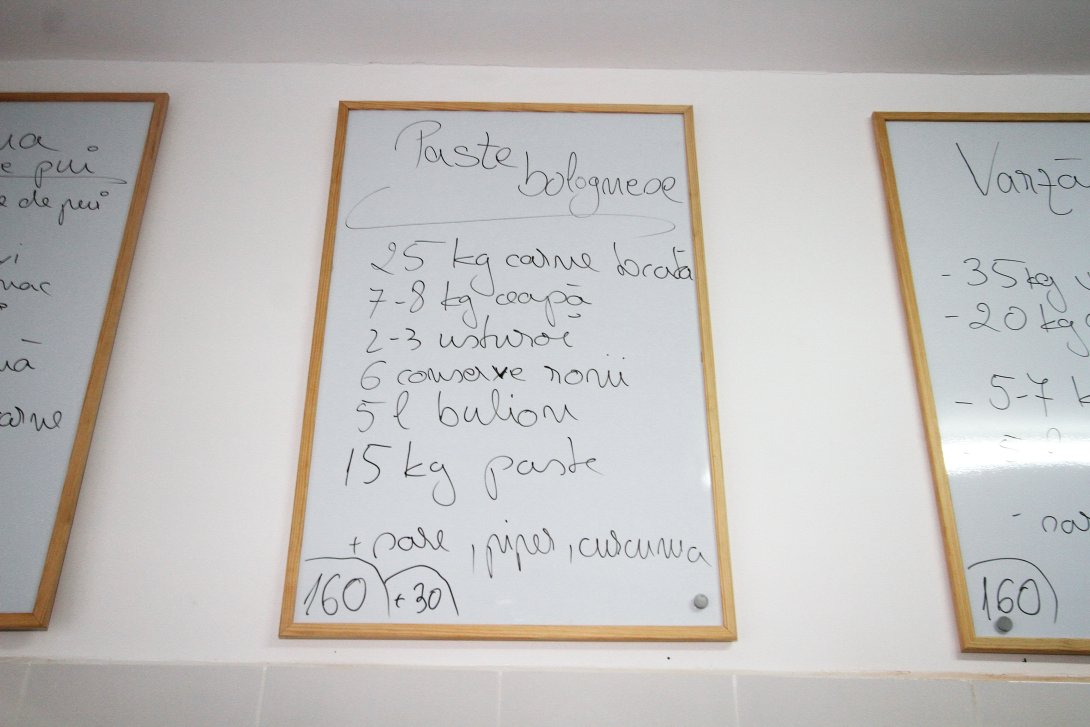 e pui
e de pui
carne
Paste
bolognese
25 kg carne tocată
7-8 kg ceapă
2-3 usturoi
6 conserve rosii
5 l bulion
15 kg paste
+ sare, piper, curcuma
160 +30
Varză
- 35 kg
- 20 kg
- 5-7 k
160